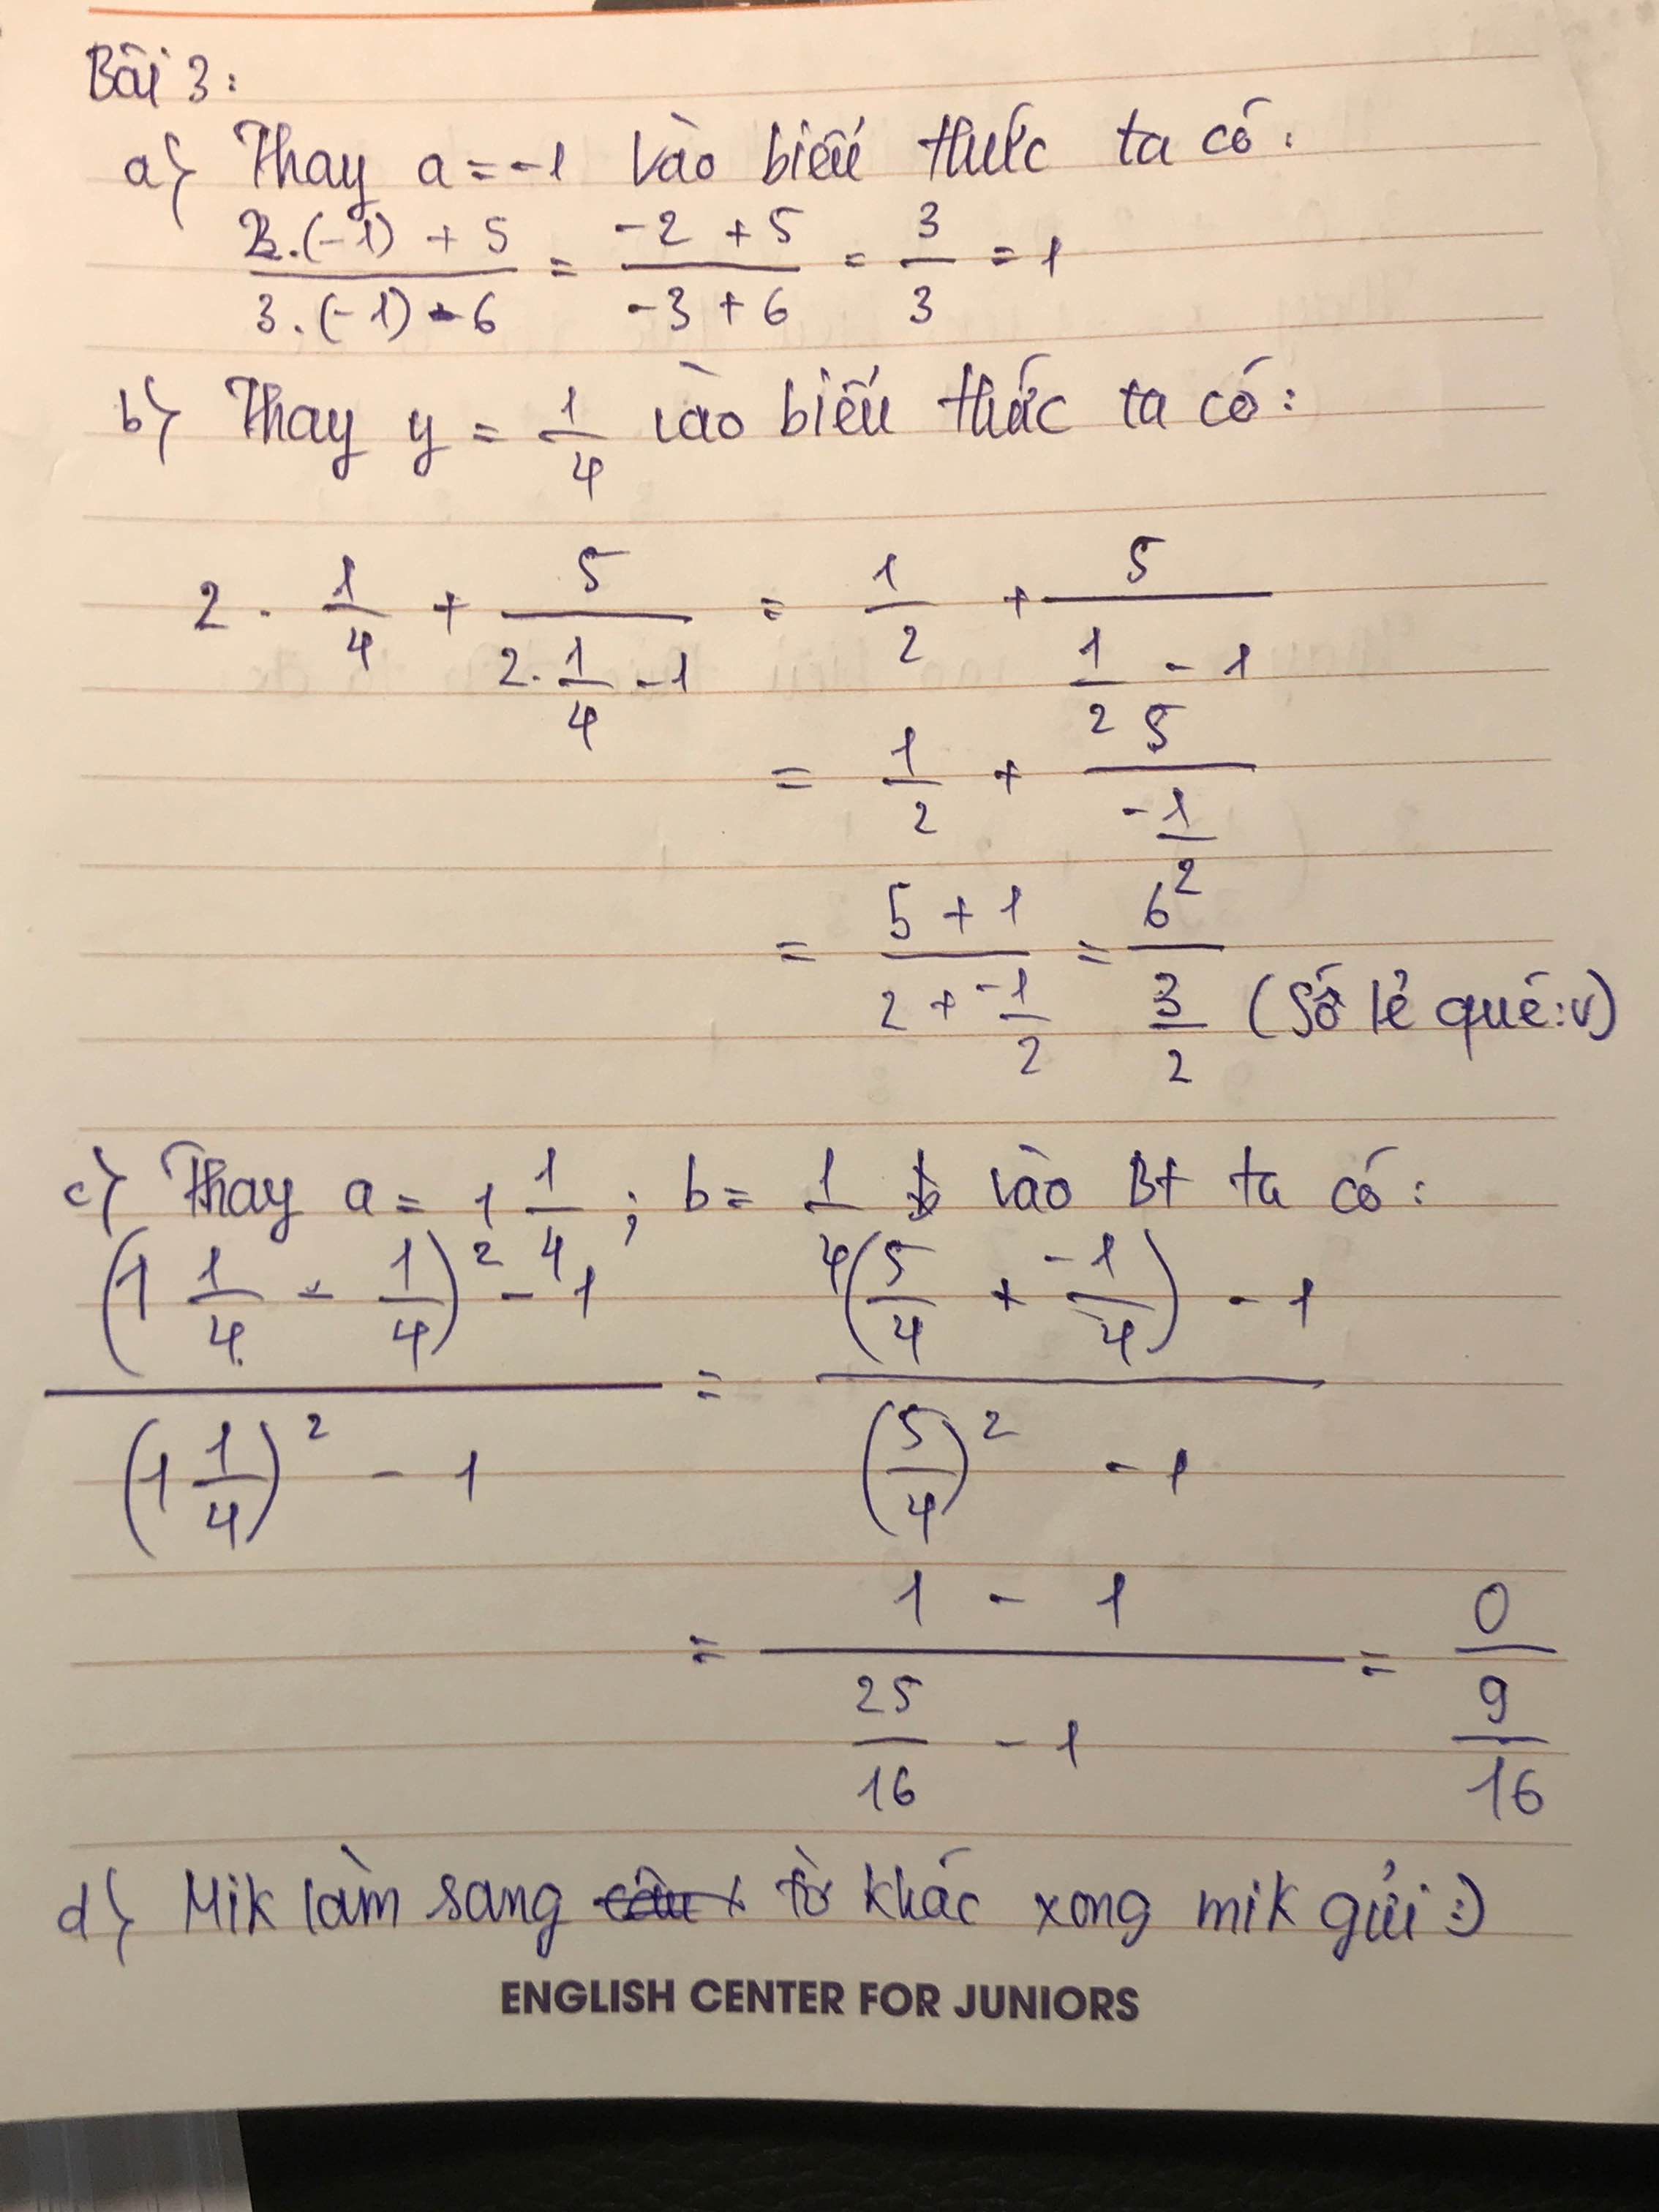 Bài 3:
a) Thay a = -1 vào biểu thức ta có:
2.(-1) + 5 / 3.(-1) - 6 = -2 + 5 / -3 + 6 = 3/3 = 1
b) Thay y = 1/4 vào biểu thức ta có:
2 . 1/4 + 5 / (2. 1/4 - 1) = 1/2 + 5 / (1/2 - 1)
= 1/2 + 5 / (-1/2)
= 5 + 1 / (2 + -1/2) = 6² / (3/2) (Số lẻ qué :v)
c) Thay a = 1 1/4 ; b = 1/4 vào Bt ta có:
(1 1/4 - 1/4)² - 1 / (1 1/4)² - 1 = (5/4 + -1/4) - 1 / (5/4)² - 1
= 1 - 1 / (25/16 - 1) = 0 / (9/16)
d) Mik làm sang tờ khác xong mik gửi :)
ENGLISH CENTER FOR JUNIORS